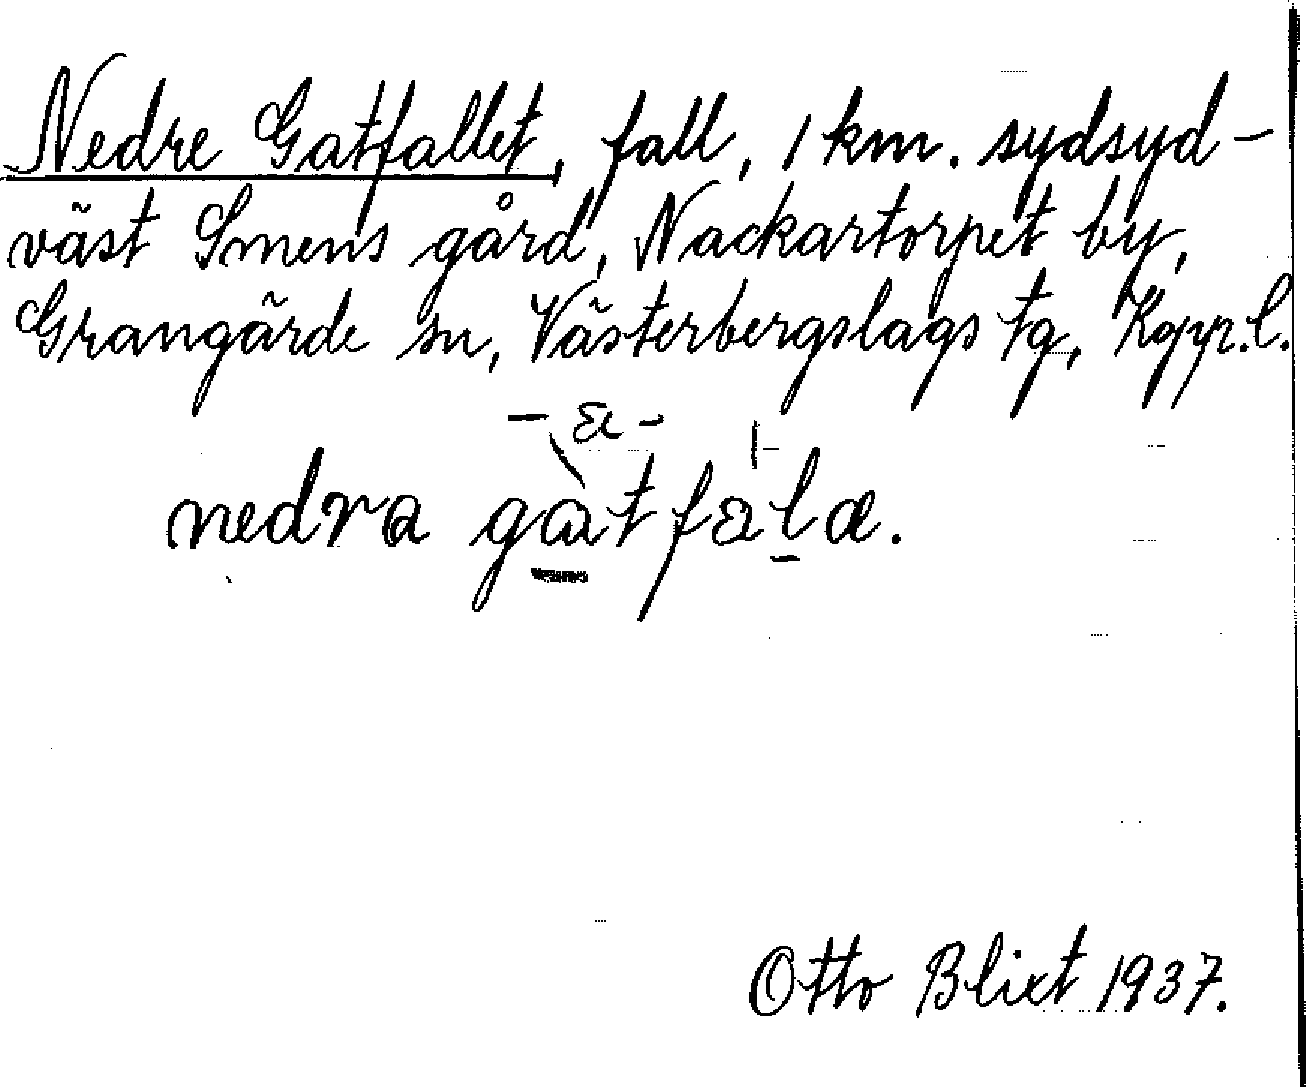 Nedre Gatfallet, fall, 1 km. sydsyd-
väst Smens gård, Nackartorpet by,
Grangärde sn, Västerbergslags tg, Kopp.l.
nedra gatfala.
Otto Blixt 1937.